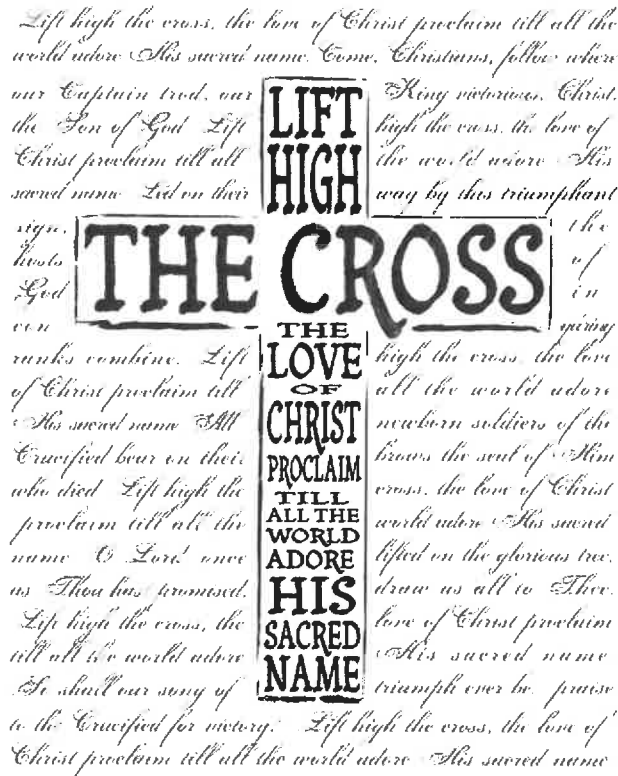 LIFT
HIGH
THE CROSS
THE
LOVE
OF
CHRIST
PROCLAIM
TILL
ALL THE
WORLD
ADORE
HIS
SACRED
NAME
Lift high the cross, the love of Christ proclaim till all the
world adore His sacred name Come, Christians, follow where
our Captain trod, our King victorious, Christ,
the Son of God Lift high the cross, the love of
Christ proclaim till all the world adore His
sacred name Led on their way by this triumphant
sign, the
hosts of
God in
con quering
ranks combine. Lift high the cross, the love
of Christ proclaim till all the world adore
His sacred name All newborn soldiers of the
Crucified bear on their brows the seal of Him
who died Lift high the cross, the love of Christ
proclaim till all the world adore His sacred
name O Lord once lifted on the glorious tree,
as Thou has promised, draw us all to Thee.
Lift high the cross, the love of Christ proclaim
till all the world adore His sacred name
So shall our song of triumph ever be praise
to the Crucified for victory. Lift high the cross, the love of
Christ proclaim till all the world adore His sacred name